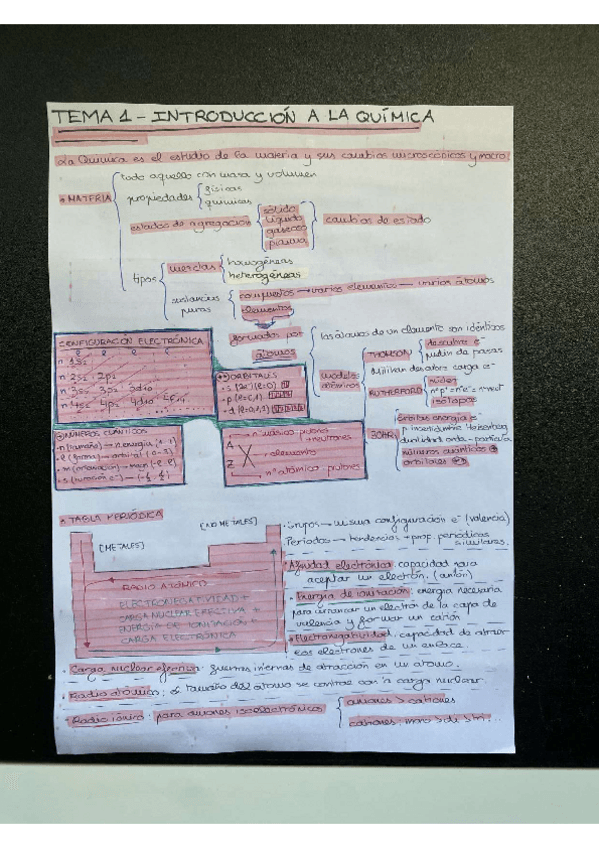 TEMA 1 - INTRODUCCIÓN A LA QUÍMICA
La Química es el estudio de la materia y sus cambios microscópicos y macro.
MATERIA
todo aquello con masa y volumen
propiedades
físicas
químicas
estados de agregación
sólido
líquido
gaseoso
plasma
cambios de estado
tipos
mezclas
homogéneas
heterogéneas
sustancias puras
compuestos → varios elementos — varios átomos
elementos
formados por átomos
los átomos de un elemento son idénticos
modelos atómicos
THOMSON
descubre e⁻
pudin de pasas
RUTHERFORD
núcleo
isótopos
BOHR
órbitas energía e⁻
p. incertidumbre Heisenberg
dualidad onda-partícula
números cuánticos
orbitales
CONFIGURACIÓN ELECTRÓNICA
ORBITALES
NÚMEROS CUÁNTICOS
A
X
Z
elemento
nº atómico
TABLA PERIÓDICA
[METALES]
[NO METALES]
RADIO ATÓMICO
ELECTRONEGATIVIDAD +
CARGA NUCLEAR EFECTIVA +
ENERGÍA DE IONIZACIÓN +
CARGA ELECTRÓNICA
Grupos → misma configuración e⁻ (valencia)
Periodos → tendencias + prop. periódicas similares.
Afinidad electrónica: capacidad para
aceptar un electrón. (anión)
Energía de ionización: energía necesaria
para arrancar un electrón de la capa de
valencia y formar un catión
Electronegatividad: capacidad de atraer
los electrones de un enlace.
Carga nuclear efectiva: fuerzas internas de atracción en un átomo.
Radio atómico: el tamaño del átomo se contrae con la carga nuclear.
Radio iónico: para aniones isoelectrónicos
aniones > cationes
cationes: mono > di > tri...